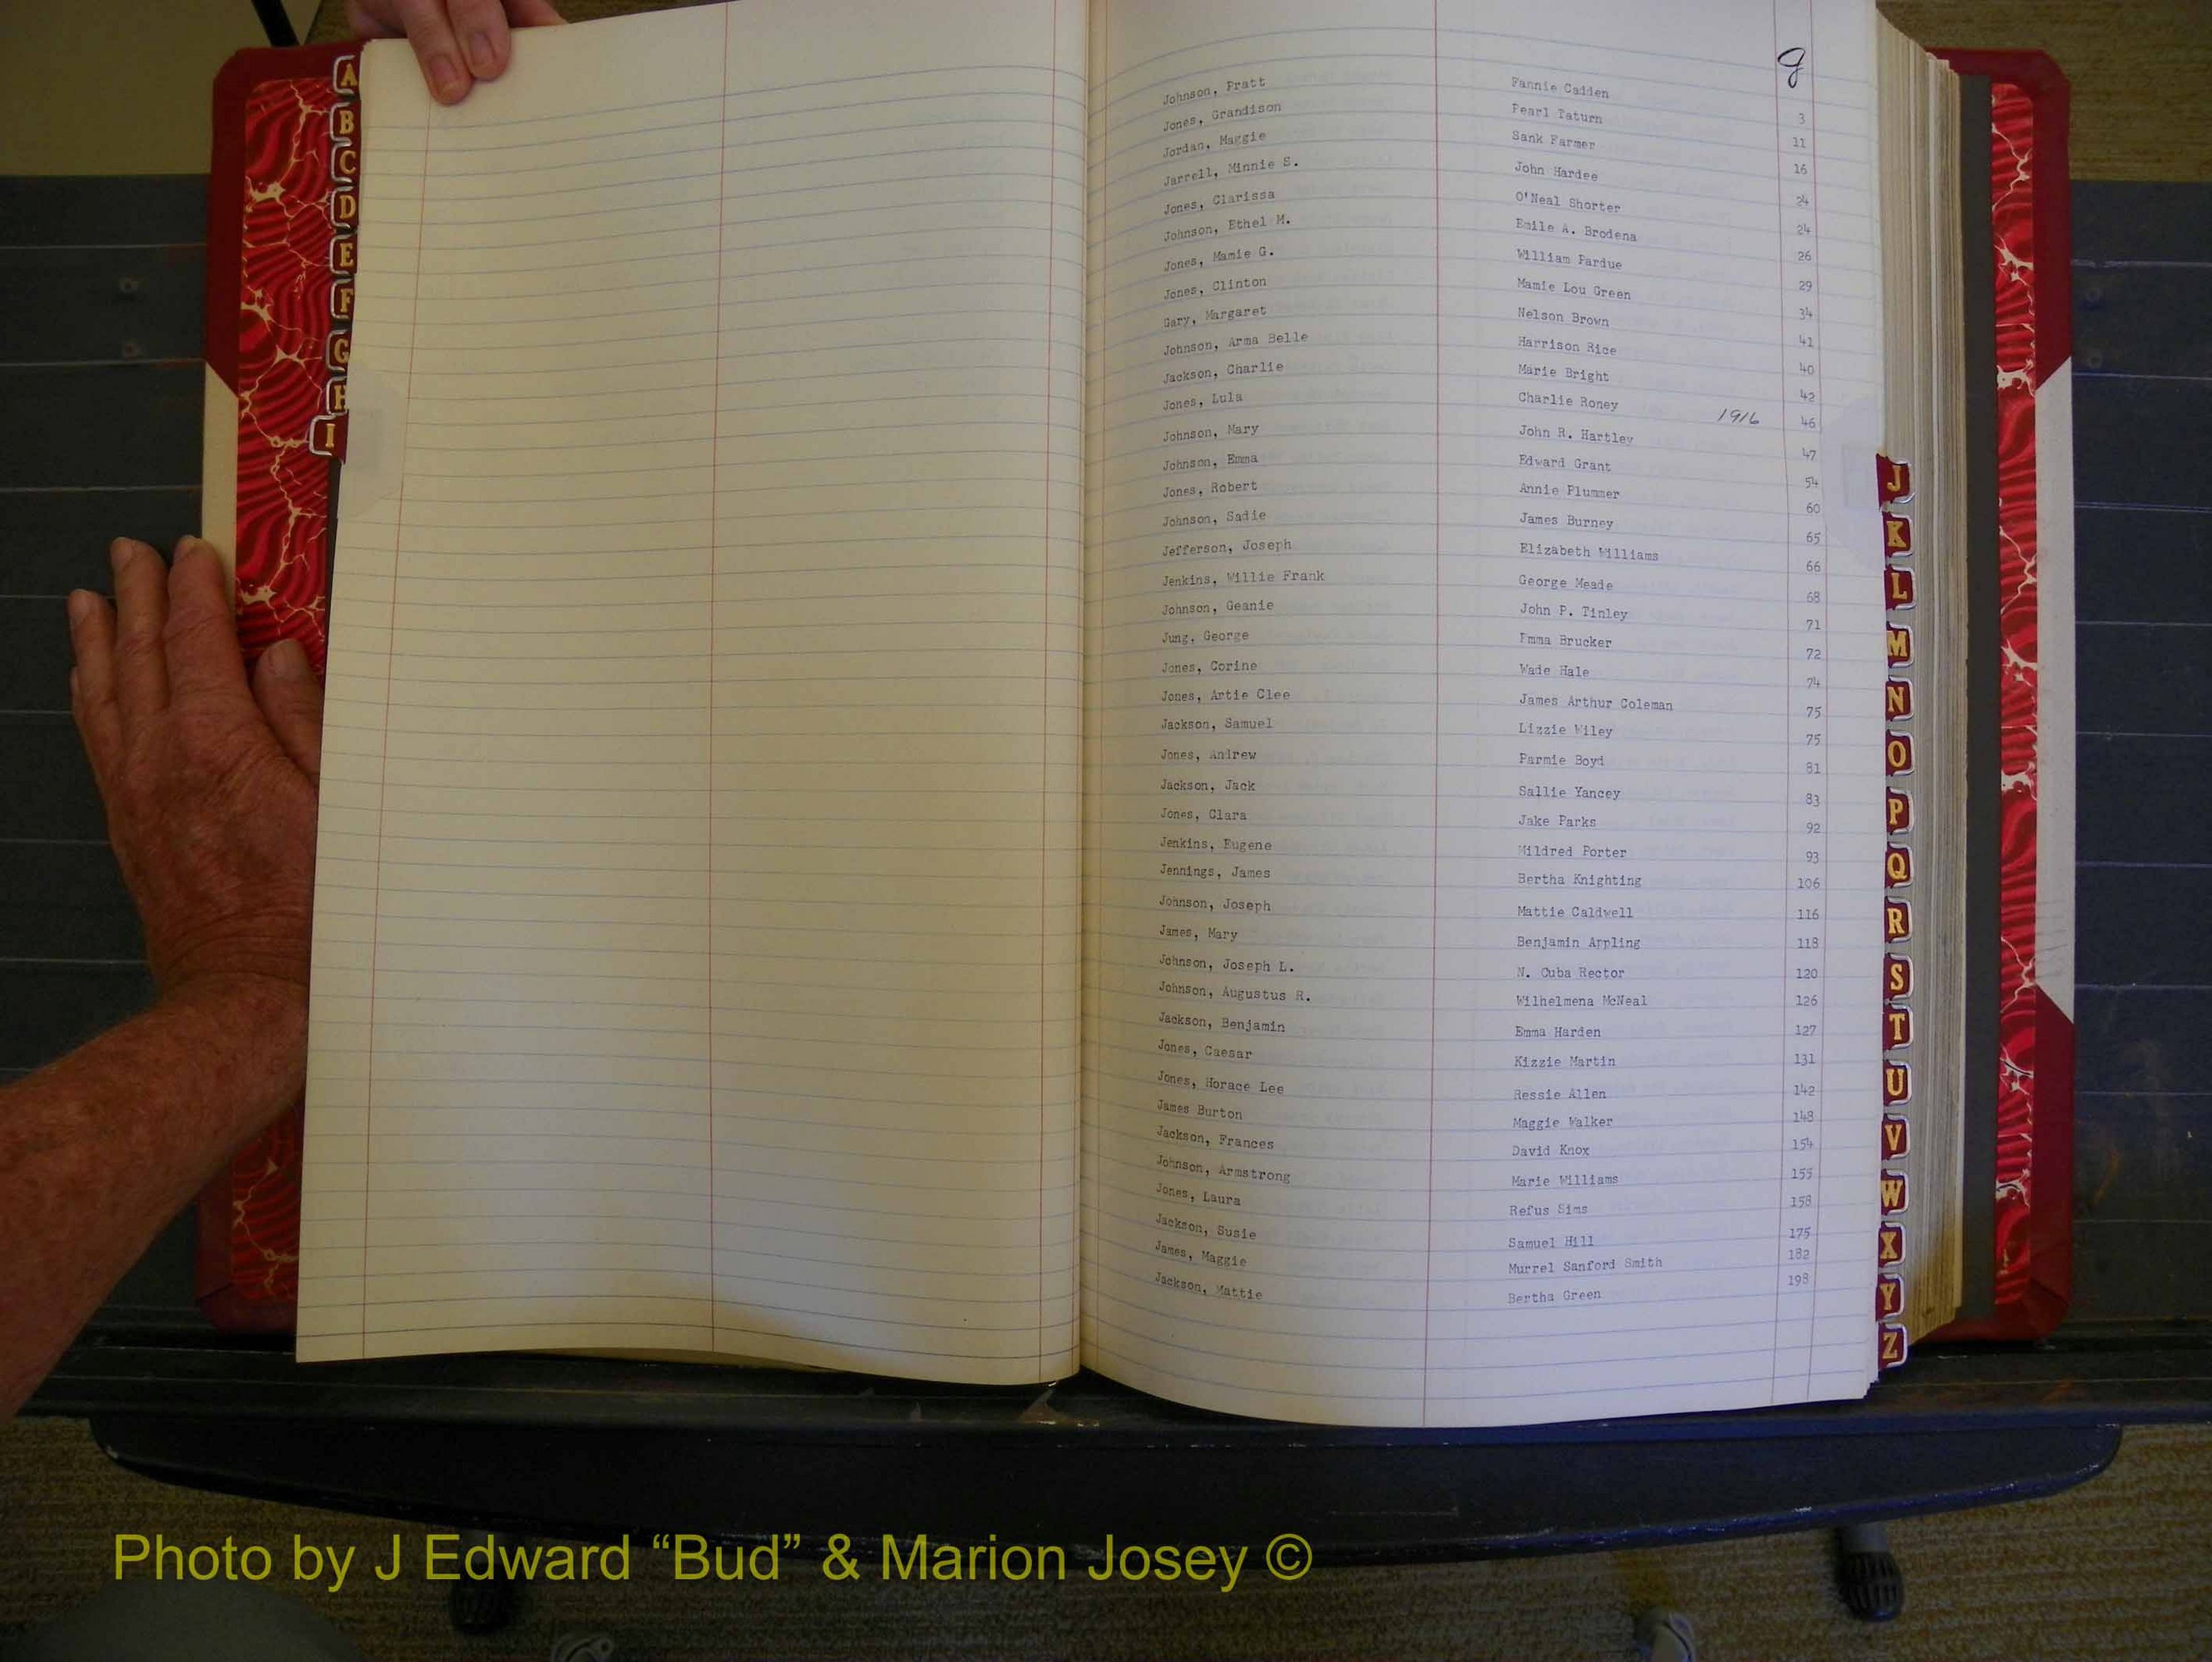 A
B
C
D
E
F
G
H
I
J
Johnson, Pratt Fannie Cadden 3
Jones, Grandison Pearl Taturn 11
Jordan, Maggie Sank Farmer 16
Jarrell, Minnie S. John Hardee 24
Jones, Clarissa O'Neal Shorter 24
Johnson, Ethel M. Emile A. Brodena 26
Jones, Mamie G. William Pardue 29
Jones, Clinton Mamie Lou Green 34
Gary, Margaret Nelson Brown 41
Johnson, Arma Belle Harrison Rice 40
Jackson, Charlie Marie Bright 42
Jones, Lula Charlie Roney 1916 46
Johnson, Mary John R. Hartley 47
Johnson, Emma Edward Grant 54
Jones, Robert Annie Plummer 60
Johnson, Sadie James Burney 65
Jefferson, Joseph Elizabeth Williams 66
Jenkins, Willie Frank George Meade 68
Johnson, Geanie John P. Tinley 71
Jung, George Emma Brucker 72
Jones, Corine Wade Hale 74
Jones, Artie Clee James Arthur Coleman 75
Jackson, Samuel Lizzie Wiley 75
Jones, Andrew Parmie Boyd 81
Jackson, Jack Sallie Yancey 83
Jones, Clara Jake Parks 92
Jenkins, Eugene Mildred Porter 93
Jennings, James Bertha Knighting 106
Johnson, Joseph Mattie Caldwell 116
James, Mary Benjamin Appling 118
Johnson, Joseph L. N. Cuba Rector 120
Johnson, Augustus R. Wilhelmena McNeal 126
Jackson, Benjamin Emma Harden 127
Jones, Caesar Kizzie Martin 131
Jones, Horace Lee Ressie Allen 142
James Burton Maggie Walker 148
Jackson, Frances David Knox 154
Johnson, Armstrong Marie Williams 155
Jones, Laura Refus Sims 158
Jackson, Susie Samuel Hill 175
James, Maggie Murrel Sanford Smith 182
Jackson, Mattie Bertha Green 198
J
K
L
M
N
O
P
Q
R
S
T
U
V
W
X
Y
Z
Photo by J Edward “Bud” & Marion Josey ©